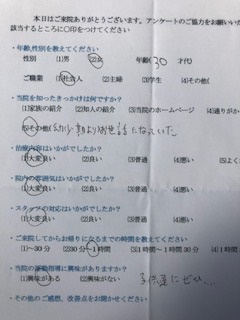 本日はご来院ありがとうございます。アンケートのご協力をお願いい
該当するところに〇印をつけてください
・年齢,性別を教えてください
性別 (1)男 (2)女 年齢( 30 才代)
ご職業 (1)社会人 (2)主婦 (3)学生 (4)その他(
・当院を知ったきっかけは何ですか?
(1)家族の紹介 (2)知人の紹介 (3)当院のホームページ (4)通りがか
(5)その他(幼少期よりお世話になっていた
・治療内容はいかがでしたか?
(1)大変良い (2)良い (3)普通 (4)悪い (5)よく
・院内の雰囲気はいかがでしたか?
(1)大変良い (2)良い (3)普通 (4)悪い (5)
・スタッフの対応はいかがでしたか?
(1)大変良い (2)良い (3)普通 (4)悪い (5)
・ご来院してからお帰りになるまでの時間を教えてください
(1)~30分 (2)30分~1時間 (3)1時間~1時間30分 (4)1時間
・当院の運動指導に興味がありますか?
(1)興味がある (2)興味がない 子供達にぜひ...
・その他のご感想、改善点をお聞かせください